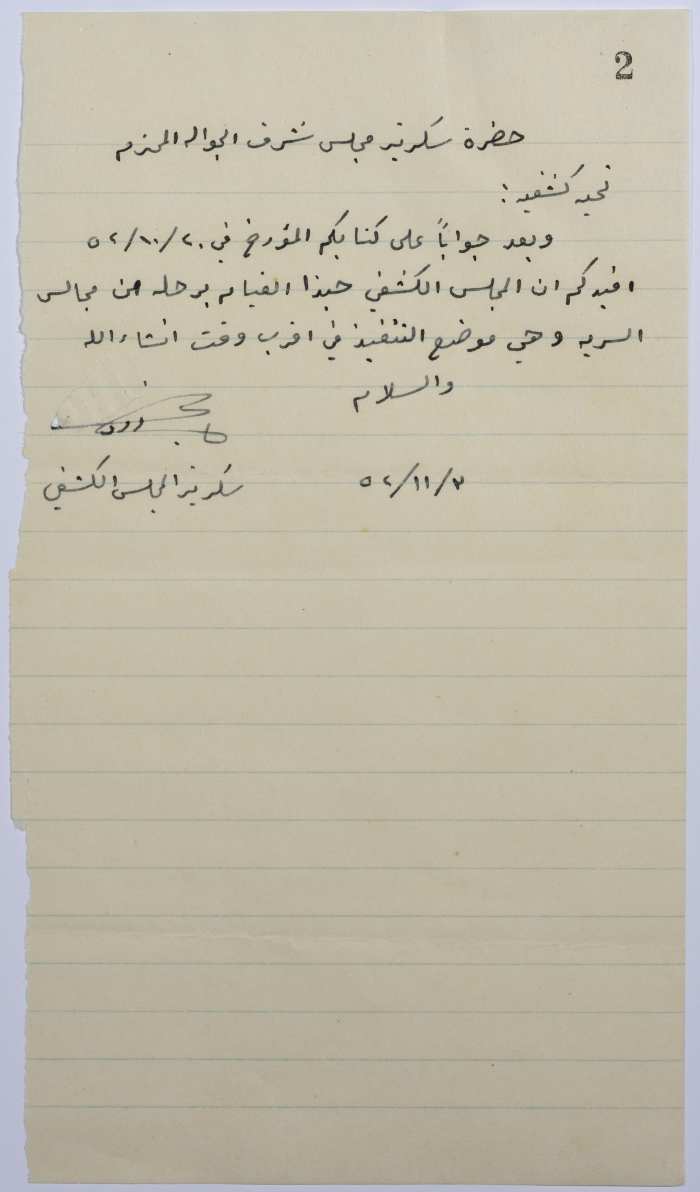 2
حضرة سكرتير مجلس شرف الجواله المحترم
تحيه كشفيه :
وبعد جواباً على كتابكم المؤرخ في ٥٢/١٠/٢٠
افيدكم ان المجلس الكشفي حبذا القيام برحله من مجالس
السريه وهي موضع التنفيذ في اقرب وقت انشاءالله
والسلام
٥٢/١١/٣
سكرتير المجلس الكشفي